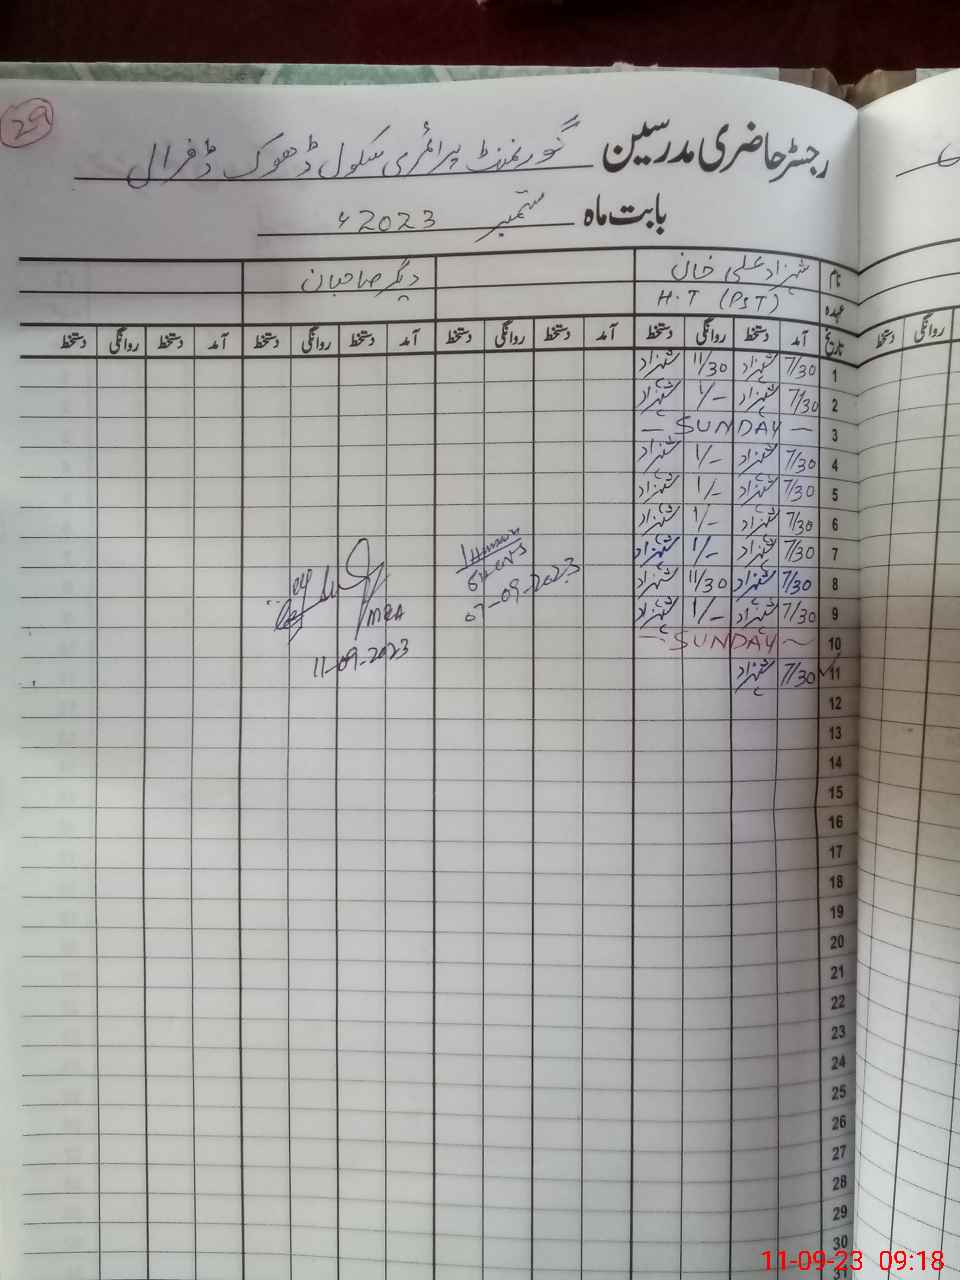 29
رجسٹر حاضری مدرسین گورنمنٹ پرائمری سکول ڈھوک ڈفرال
بابت ماہ ستمبر 2023ء
نام شہزاد علی خان دیگر صاحبان
عہدہ H.T (PST)
تاریخ آمد دستخط روانگی دستخط آمد دستخط روانگی دستخط آمد دستخط روانگی دستخط آمد دستخط روانگی دستخط
روانگی دستخط
1 7/30 شہزاد 11/30 شہزاد
2 7/30 شہزاد 1/- شہزاد
3 - SUNDAY -
4 7/30 شہزاد 1/- شہزاد
5 7/30 شہزاد 1/- شہزاد
6 7/30 شہزاد 1/- شہزاد
7 7/30 شہزاد 1/- شہزاد
8 7/30 شہزاد 11/30 شہزاد
9 7/30 شہزاد 1/- شہزاد
07-09-2023
MEA
11-09-2023
10 - SUNDAY -
11 7/30 شہزاد
12
13
14
15
16
17
18
19
20
21
22
23
24
25
26
27
28
29
30
31
11-09-23 09:18